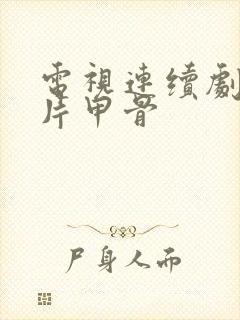 電視連續劇
片甲骨
尸身人而